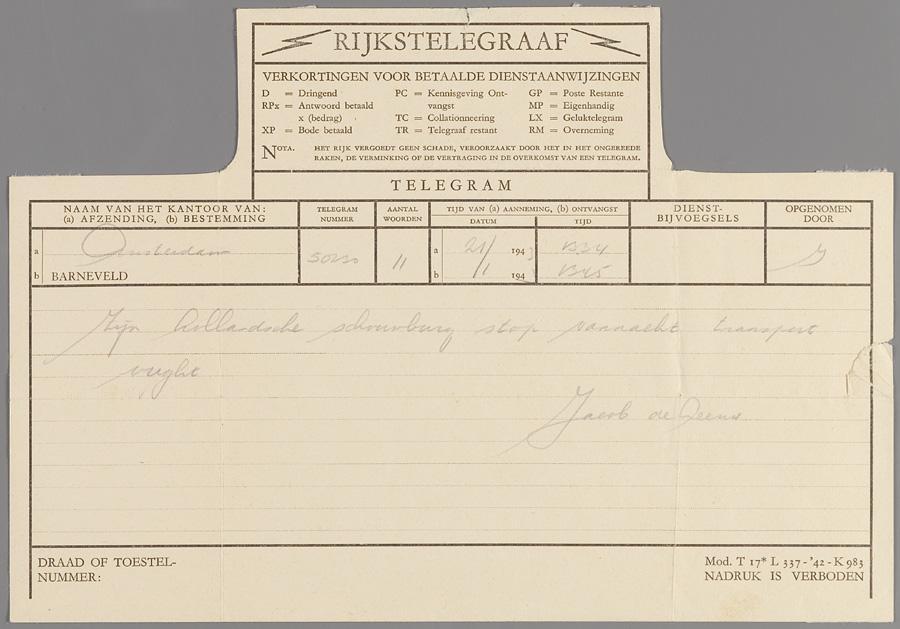 RIJKSTELEGRAAF
VERKORTINGEN VOOR BETAALDE DIENSTAANWIJZINGEN
D = Dringend
RPx = Antwoord betaald
x (bedrag)
XP = Bode betaald
PC = Kennisgeving Ont-
vangst
TC = Collationneering
TR = Telegraaf restant
GP = Poste Restante
MP = Eigenhandig
LX = Geluktelegram
RM = Overneming
NOTA. HET RIJK VERGOEDT GEEN SCHADE, VEROORZAAKT DOOR HET IN HET ONGEREEDE
RAKEN, DE VERMINKING OF DE VERTRAGING IN DE OVERKOMST VAN EEN TELEGRAM.
TELEGRAM
NAAM VAN HET KANTOOR VAN:
(a) AFZENDING, (b) BESTEMMING
TELEGRAM
NUMMER
AANTAL
WOORDEN
TIJD VAN (a) AANNEMING, (b) ONTVANGST
DATUM
TIJD
DIENST-
BIJVOEGSELS
OPGENOMEN
DOOR
a Amsterdam
b BARNEVELD
11
a 21/1 194
b 194
1334
1345
Zijn hollandsche schouwburg stop vannacht transport
vught
Jacob de
DRAAD OF TOESTEL-
NUMMER:
Mod. T 17* L 337-'42-K 983
NADRUK IS VERBODEN